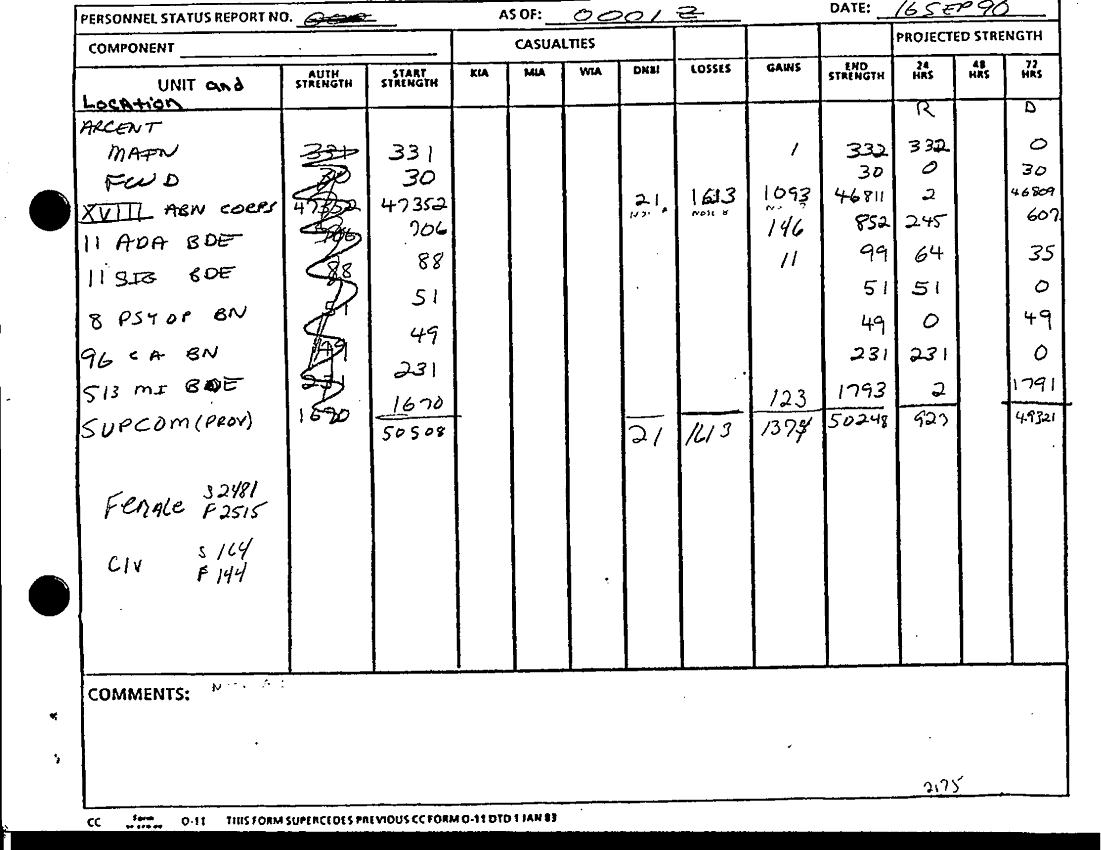 PERSONNEL STATUS REPORT NO. AS OF: 0001 Z DATE: 16 SEP 90
COMPONENT CASUALTIES PROJECTED STRENGTH
UNIT and Location AUTH STRENGTH START STRENGTH KIA MIA WIA DNBI LOSSES GAINS END STRENGTH 24 HRS 48 HRS 72 HRS
R D
ARCENT
MAIN 331 331 1 332 332 0
FWD 30 30 30 0 30
XVIII ABN CORPS 47352 47352 21 1613 1093 46811 2 46809
11 ADA BDE 706 706 146 852 245 607
11 SIG BDE 88 88 11 99 64 35
8 PSYOP BN 51 51 51 51 0
96 CA BN 49 49 49 0 49
513 MI BDE 231 231 231 231 0
SUPCOM (PROV) 1670 1670 123 1793 2 1791
50508 21 1613 1374 50248 927 49321
Female S 2481
F 2515
CIV S 164
F 144
COMMENTS:
2175
CC Form O-11 THIS FORM SUPERCEDES PREVIOUS CC FORM O-11 DTD 1 JAN 83